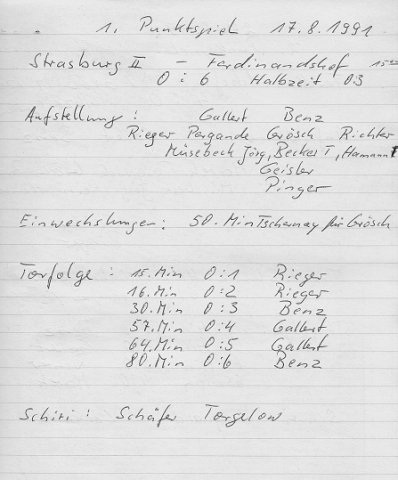 1. Punktspiel 17.8.1991
Strasburg II - Ferdinandshof 15⁰⁰
0 : 6 Halbzeit 0:3
Aufstellung : Gallert Benz
Rieger Pergande Grösch Richter
Müsebeck Jörg, Becker T, Hamann
Geisler
Pinger
Einwechslungen: 50. Min Tschernay für Grösch
Torfolge : 15. Min 0:1 Rieger
16. Min 0:2 Rieger
30. Min 0:3 Benz
57. Min 0:4 Gallert
64. Min 0:5 Gallert
80. Min 0:6 Benz
Schiri : Schäfer Torgelow